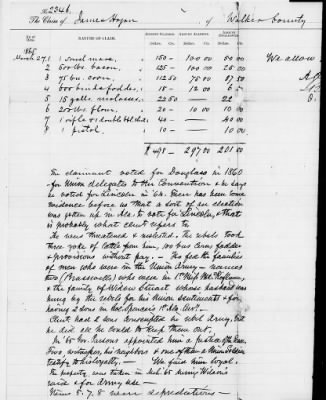 No 2346.
The Claim of James Hogan of Walker County
NATURE OF CLAIM.
1865
March 27. 1 1 small mare. 150 - 100 00 50 00
2 500 lbs. bacon. 125 - 100 00 25 00
3 75 bu. corn. 112 50 75 00 37 50
4 600 bundles fodder. 18 - 12 00 6
5 15 galls. molasses. 22 50 22
6 200 lbs. flour. 20 - 10 00 10 00
7 1 rifle & double bbl shot 40 - 40 00
8 1 pistol. 10 - 10 00
$ 498 - 297 00 201 00
We allow
The claimant voted for Douglass in 1860
for Union delegates to the Convention & he says
he voted for Lincoln in '64. There has been some
evidence before us that a sort of an election
was gotten up in Ala. to vote for Lincoln, & that
is probably what clmt refers to.
He was threatened & molested. The rebels took
three yoke of cattle from him, 100 bus corn fodder
& provisions without pay. - He fed the families
of men who were in the Union Army -
two who were in
& the family of Widow Stuart whose husband was
hung by the rebels for his Union sentiments & for
having 2 sons in Col. Spencer's 1st Ala. Cav.
Clmt had 2 sons conscripted in rebel Army, but
he did all he could to keep them out.
In '65 Gov Parsons appointed him a Justice of the Peace.
Two witnesses, his neighbors & one of them a Union Soldier
testify to his loyalty. - We find him loyal.
The property was taken in '65 during Wilson's
raid & for army use -
Items 5. 7. 8 were depredations -